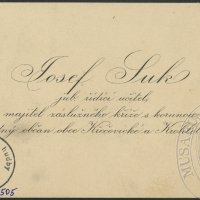 Josef Suk
jub. řídící učitel,
majitel záslužného kříže s korunou,
čestný občan obce Kročovické a Krchleb
505
MUSA